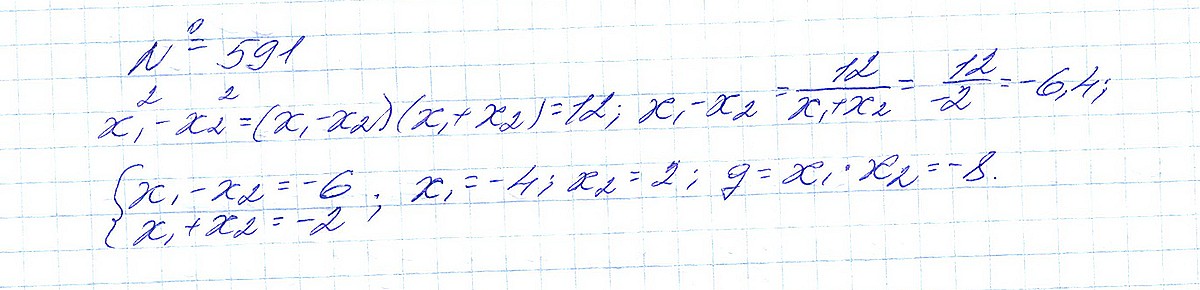 № 591
x₁² - x₂² = (x₁ - x₂)(x₁ + x₂) = 12; x₁ - x₂ = 12/(x₁ + x₂) = 12/-2 = -6,4;
{x₁ - x₂ = -6; x₁ = -4; x₂ = 2; g = x₁ · x₂ = -8.
x₁ + x₂ = -2